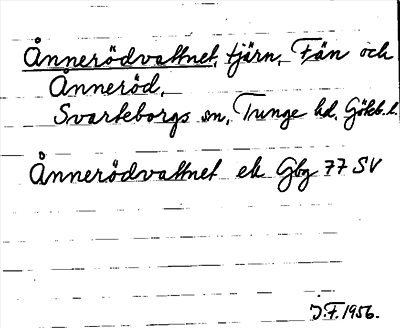 Ånnerödvattnet, tjärn, Fän och
Ånneröd,
Svarteborgs sn, Tunge hd, Götb. l.
Ånnerödvattnet ek Gbg 77 SV
J.F. 1956.